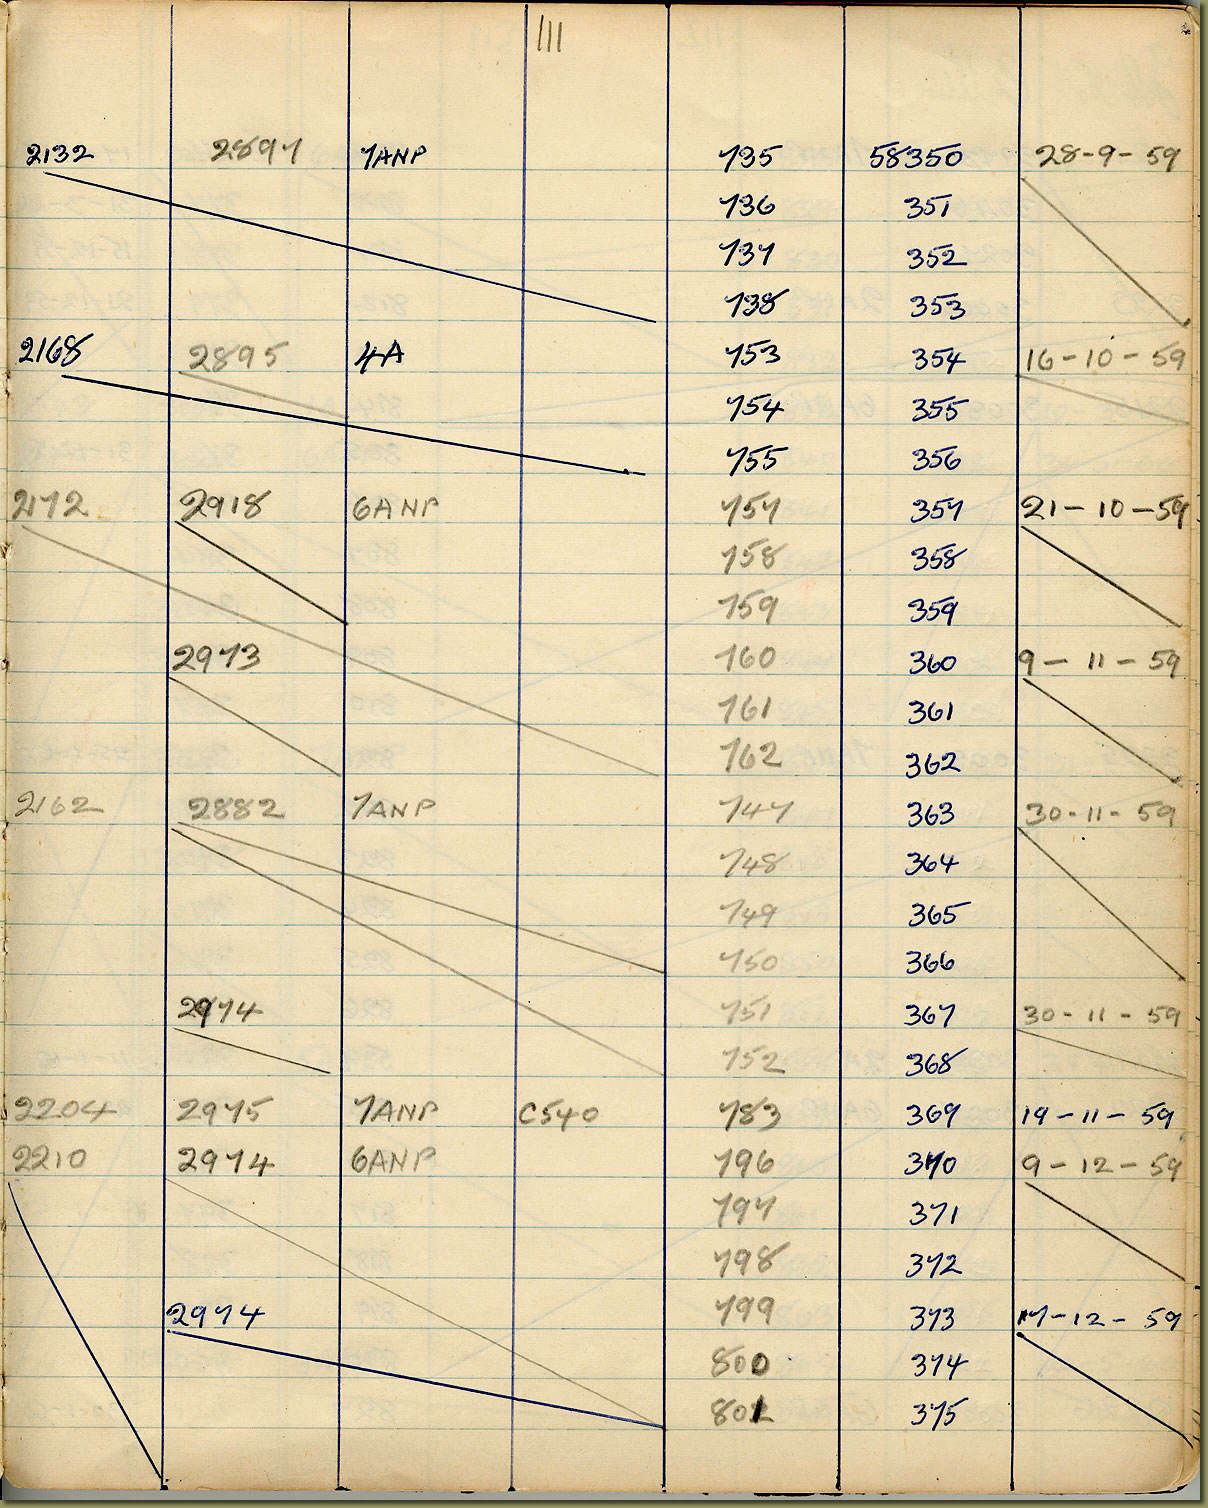 111
2132 2897 7ANP 735 58350 28-9-59
736 351
737 352
738 353
2168 2895 4A 753 354 16-10-59
754 355
755 356
2172 2918 6ANP 757 357 21-10-59
758 358
759 359
2973 760 360 9-11-59
761 361
762 362
2162 2882 7ANP 747 363 30-11-59
748 364
749 365
750 366
2974 751 367 30-11-59
752 368
2204 2975 7ANP C540 783 369 19-11-59
2210 2974 6ANP 796 370 9-12-59
797 371
798 372
2974 799 373 17-12-59
800 374
801 375